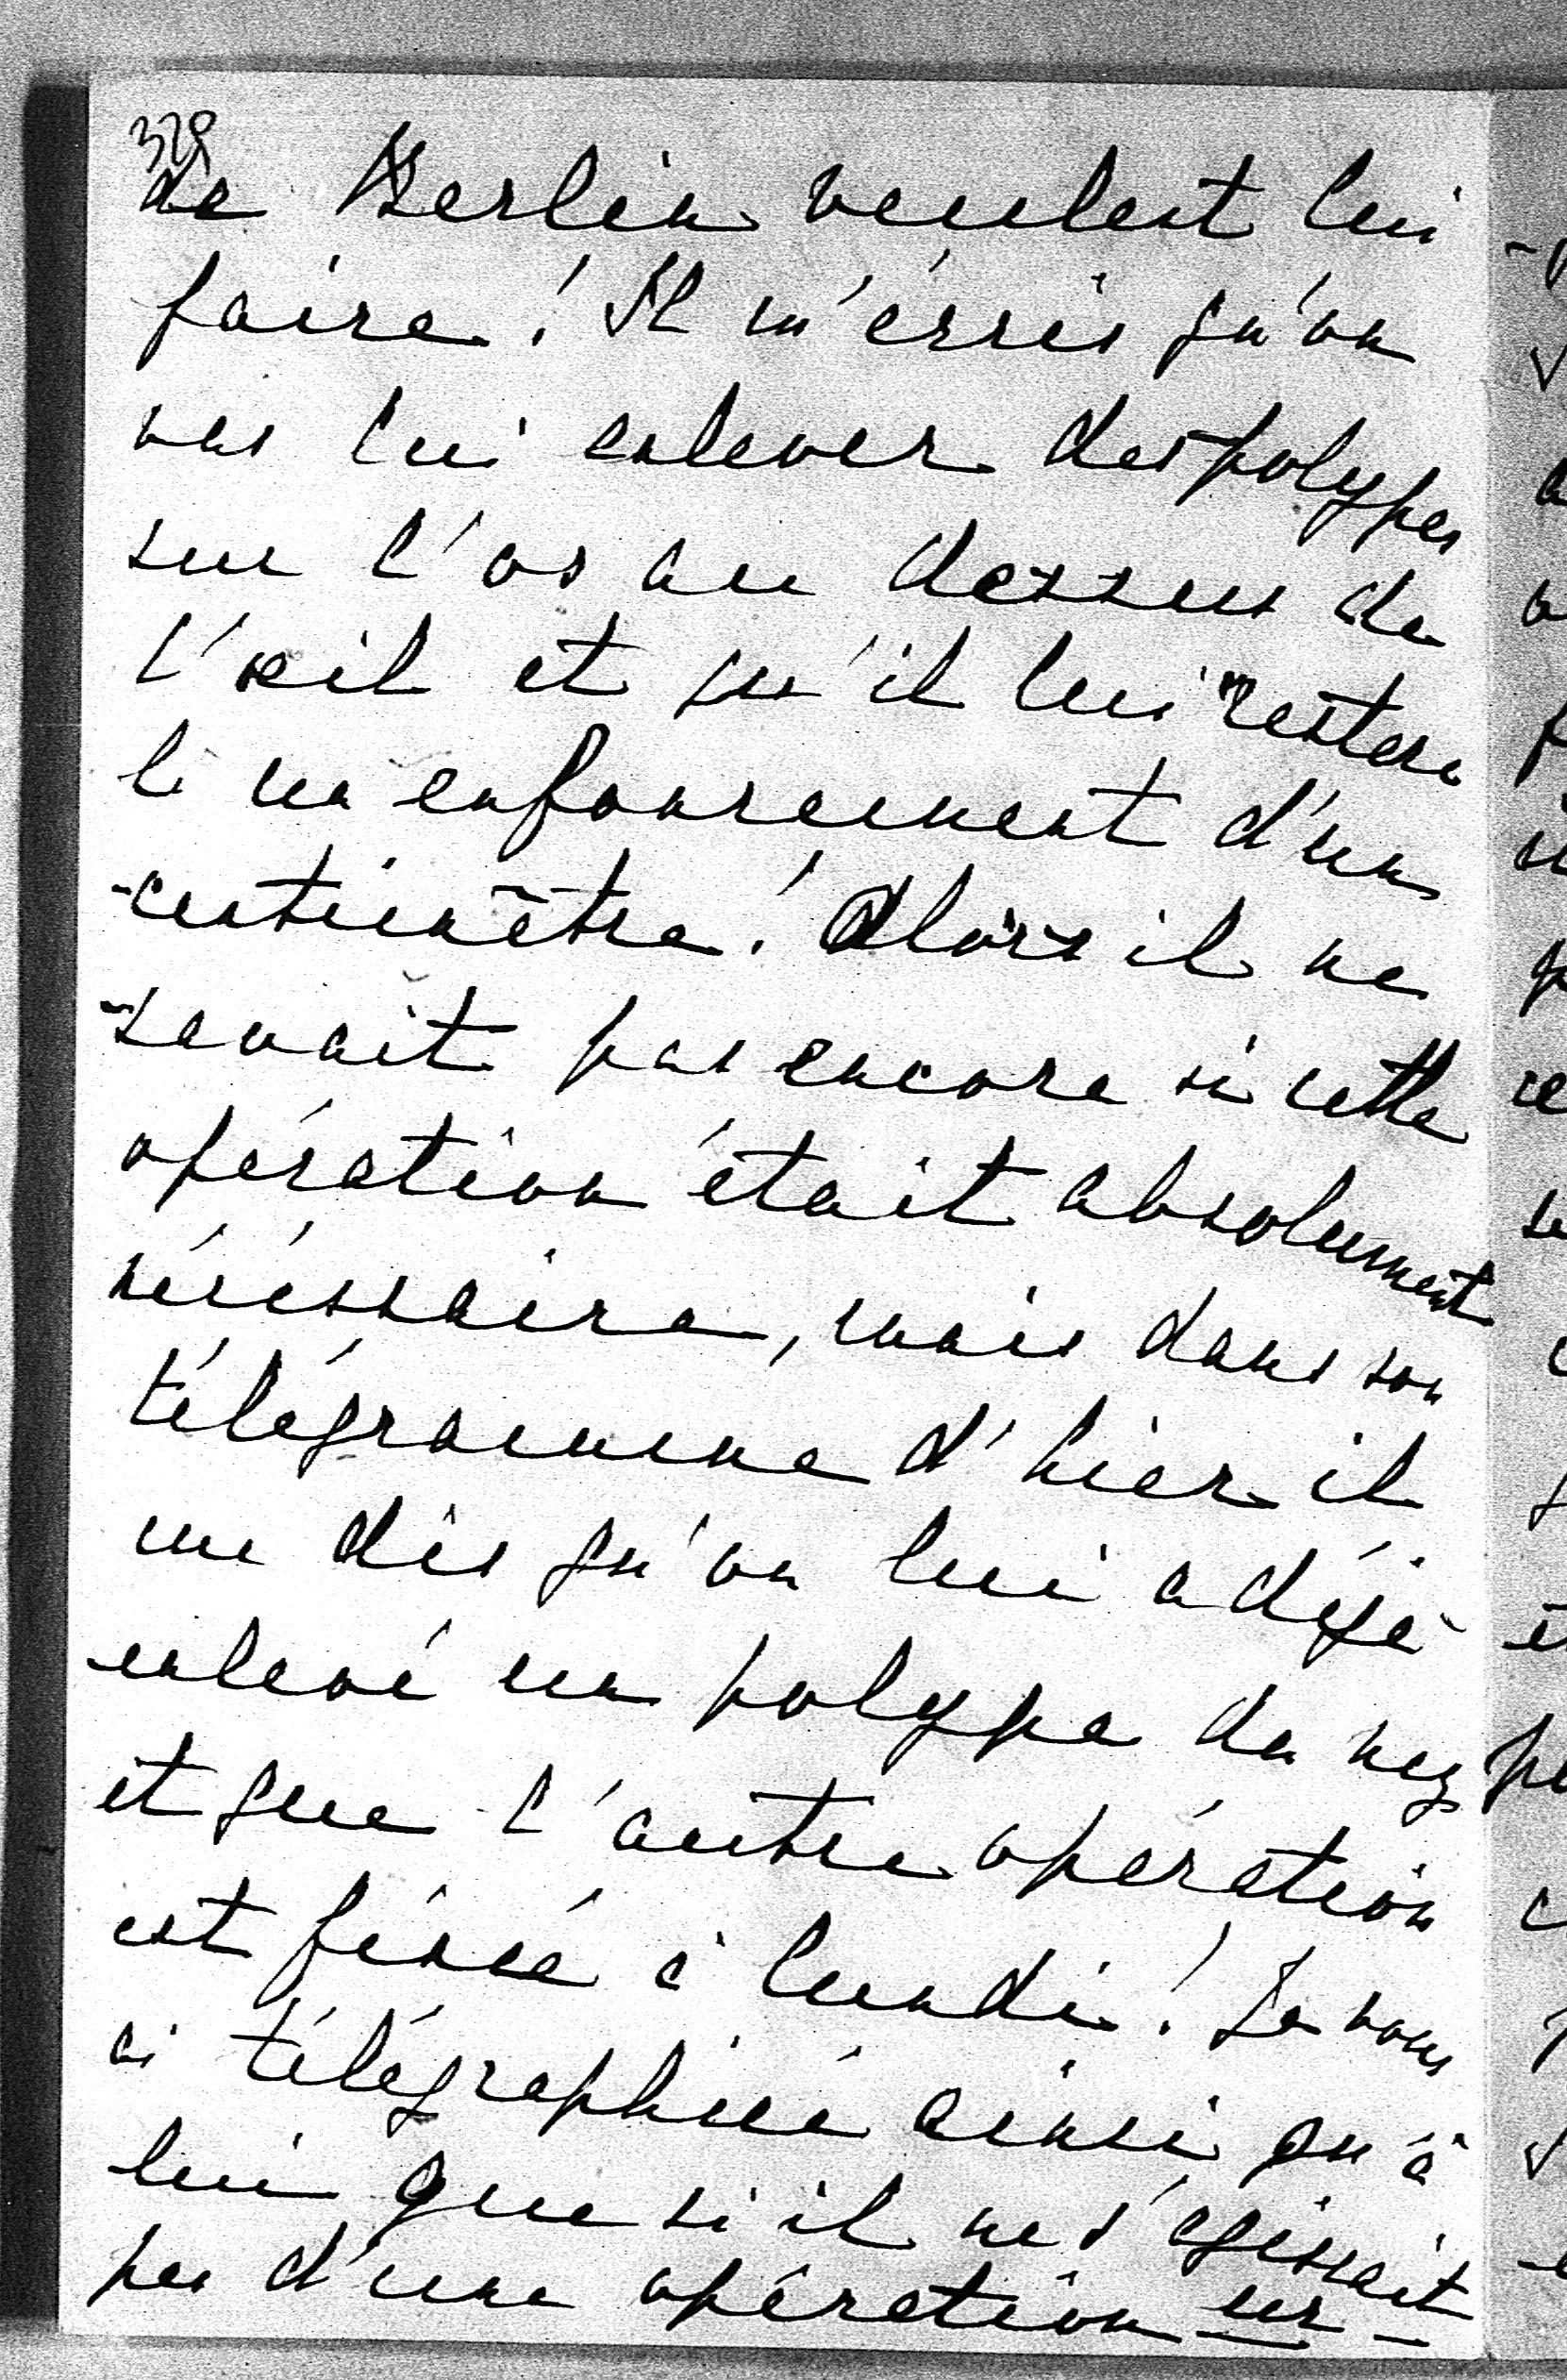 329
de Berlin veulent lui
faire! Il m'écris qu'on
vas lui enlever des polypes
sur l'os au dessus de
l'œil et qu'il lui restera
là un enfoncement d'un
centimètre! Alors il ne
savait pas encore si cette
opération était absolument
nécéssaire, mais dans son
télégramme d'hier il
me dis qu'on lui a déjà
enlevé un polype du nez
et que l'autre opération
est fixée à lundi! Je vous
ai télégraphié ainsi qu'à
lui que si il ne s'agissait
pas d'une opération ur-